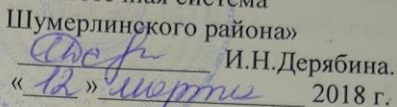 система
Шумерлинского района»
И.Н.Дерябина.
« 12 » марта 2018 г.